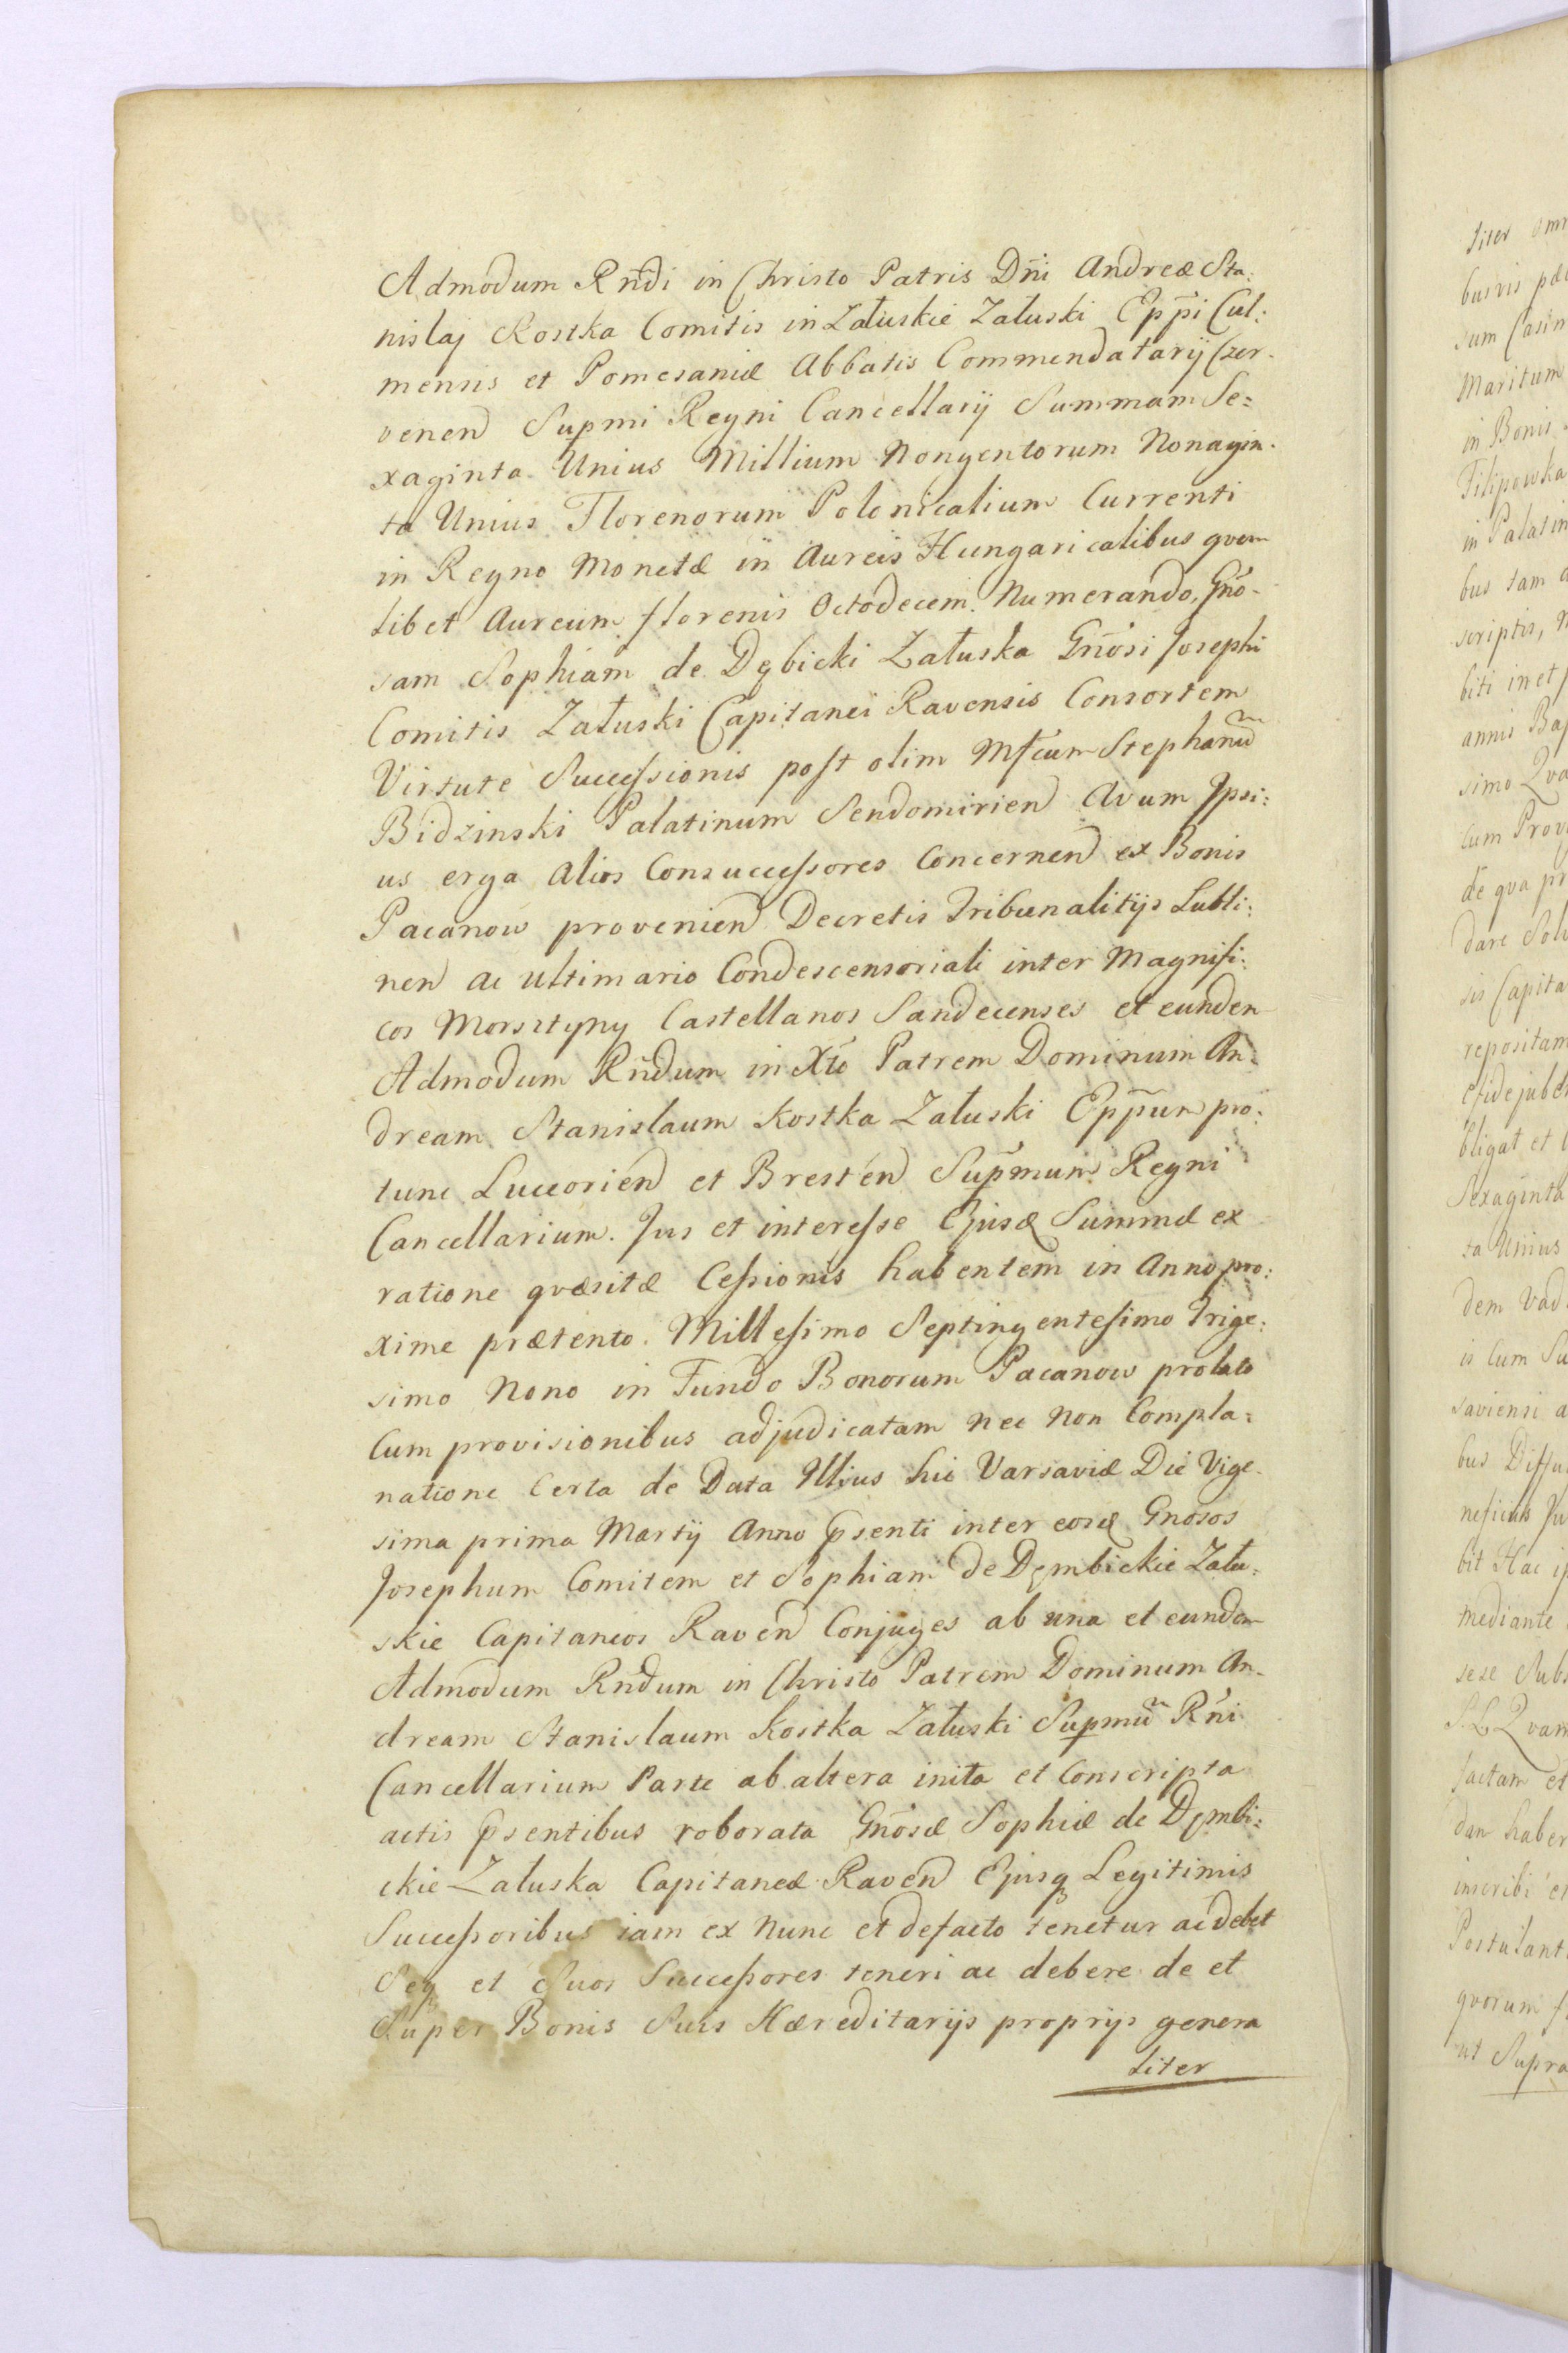 Admodum Rn̄di in Christo Patris Dn̄i Andreæ Sta:
nislaj Kostka Comitis in Załuskie Załuski Epp̄i Cul:
mensis et Pomesaniæ Abbatis Commendatarij Czer-
venen Supmi Regni Cancellarij Summam Se:
xaginta Unius Millium Nongentorum Nonagin-
ta Unius Florenorum Polonicalium Currenti
in Regno Monetæ in Aureis Hungaricalibus qvem
libet Aureum florenis Octodecem Numerando, Gn̄o-
sam Sophiam de Dębicki Załuska Gn̄osi Josephi
Comitis Załuski Capitanei Ravensis Consortem
Virtute Successionis post olim Mf̄cum Stephanū
Bidzinski Palatinum Sendomirien Avum Ipsi:
us erga alios Consuccessores Concernen ex Bonis
Pacanow provenien Decretis Tribunalitijs Lubli:
nen ac ultimario Condescensoriali inter Magnifi:
cos Morsztyny Castellanos Sandecenses et eunden
Admodum Rn̄dum in Xt̄o Patrem Dominum An:
dream Stanislaum Kostka Załuski Epp̄um pro:
tunc Luceorien et Bresten Sup̄mum Regni
Cancellarium. Jus et interesse Ejusd Summæ ex
ratione qvæsitæ Cessionis habentem in Anno pro:
xime prætento. Millesimo Septingentesimo Trige:
simo Nono in Fundo Bonorum Pacanow prolato
Cum provisionibus adjudicatam nec non Compla:
natione Certa de Data Illius hic Varsaviæ Die Vige-
sima prima Martij Anno p̄senti inter eosd Gnosos
Josephum Comitem et Sophiam de Dęmbickie Zału:
skie Capitaneos Raven Conjuges ab una et eundem
Admodum Rndum in Christo Patrem Dominum An-
dream Stanislaum Kostka Załuski Supmū Rn̄i
Cancellarium Parte ab altera inita et Conscripta
actis p̄sentibus roborata Gn̄osæ Sophiæ de Dęmbi:
ckie Załuska Capitaneæ Raven Ejusq Legitimis
Successoribus iam ex nunc et defacto tenetur ac debet
Seq et Suos Successores teneri ac debere de et
Super Bonis Suis Hæreditarijs proprijs genera
liter
liter
busvis
sum
Maritum
in Bonis
Filipowka
in Palatin
bus tam
scriptis,
biti in et
annis Bap
simo Qva
cum Prov
de qva pr
dare Solv
sis Capita
repositam
bligat et
Sexaginta
ta Unius
dem Vad
is cum Su
saviensi a
bus
bit Hac ip
mediante
sese Subs
S. L. Qvam
factam et
dan haber
inscribi et
Postulant
qvorum
ut Supra